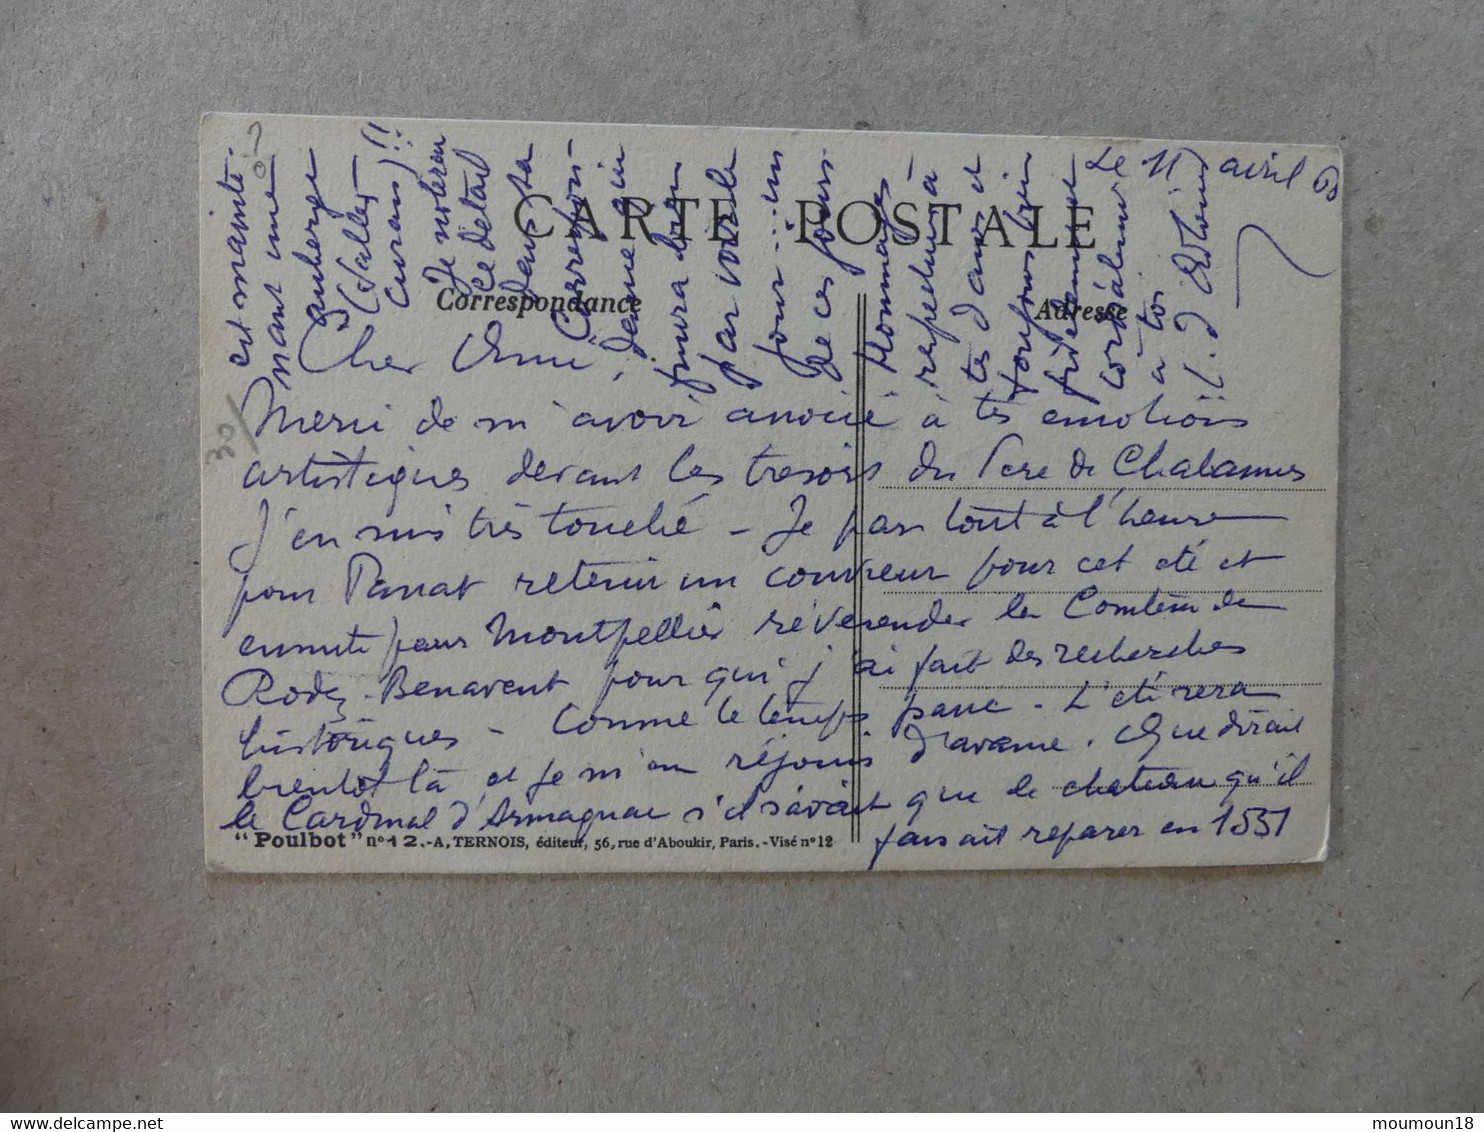 Le 11 avril 60
CARTE POSTALE
Correspondance
Adresse
Cher Ami,
Merci de m'avoir associé à tes emotions
artistiques devant les tresors du Pere de Chalamus
J'en suis très touché - Je pars tout à l'heure
pour Panat retenir un couvreur pour cet été et
ensuite pour Montpellier reverender la Comtesse de
Rodez-Benavent pour qui j'ai fait des recherches
historiques - Comme le temps passe - L'été sera
bientot là et je m'en réjouis d'avance. Que dirait
le Cardinal d'Armagnac s'il savait que le chateau qu'il
faisait reparer en 1531
est mainte-
nant une
auberge
(Salles
Curan)!!
Je noterai
ce detail
dans ta
Correspon-
dance
finira bien
par voir le
jour... un
de ces jours
Hommages
respectueux à
tes dames et
toujours bien
fidelement et
cordialement
à toi
30/
"Poulbot" n° 12.-A. TERNOIS, éditeur, 56, rue d'Aboukir, Paris.-Visé n° 12
moumoun18